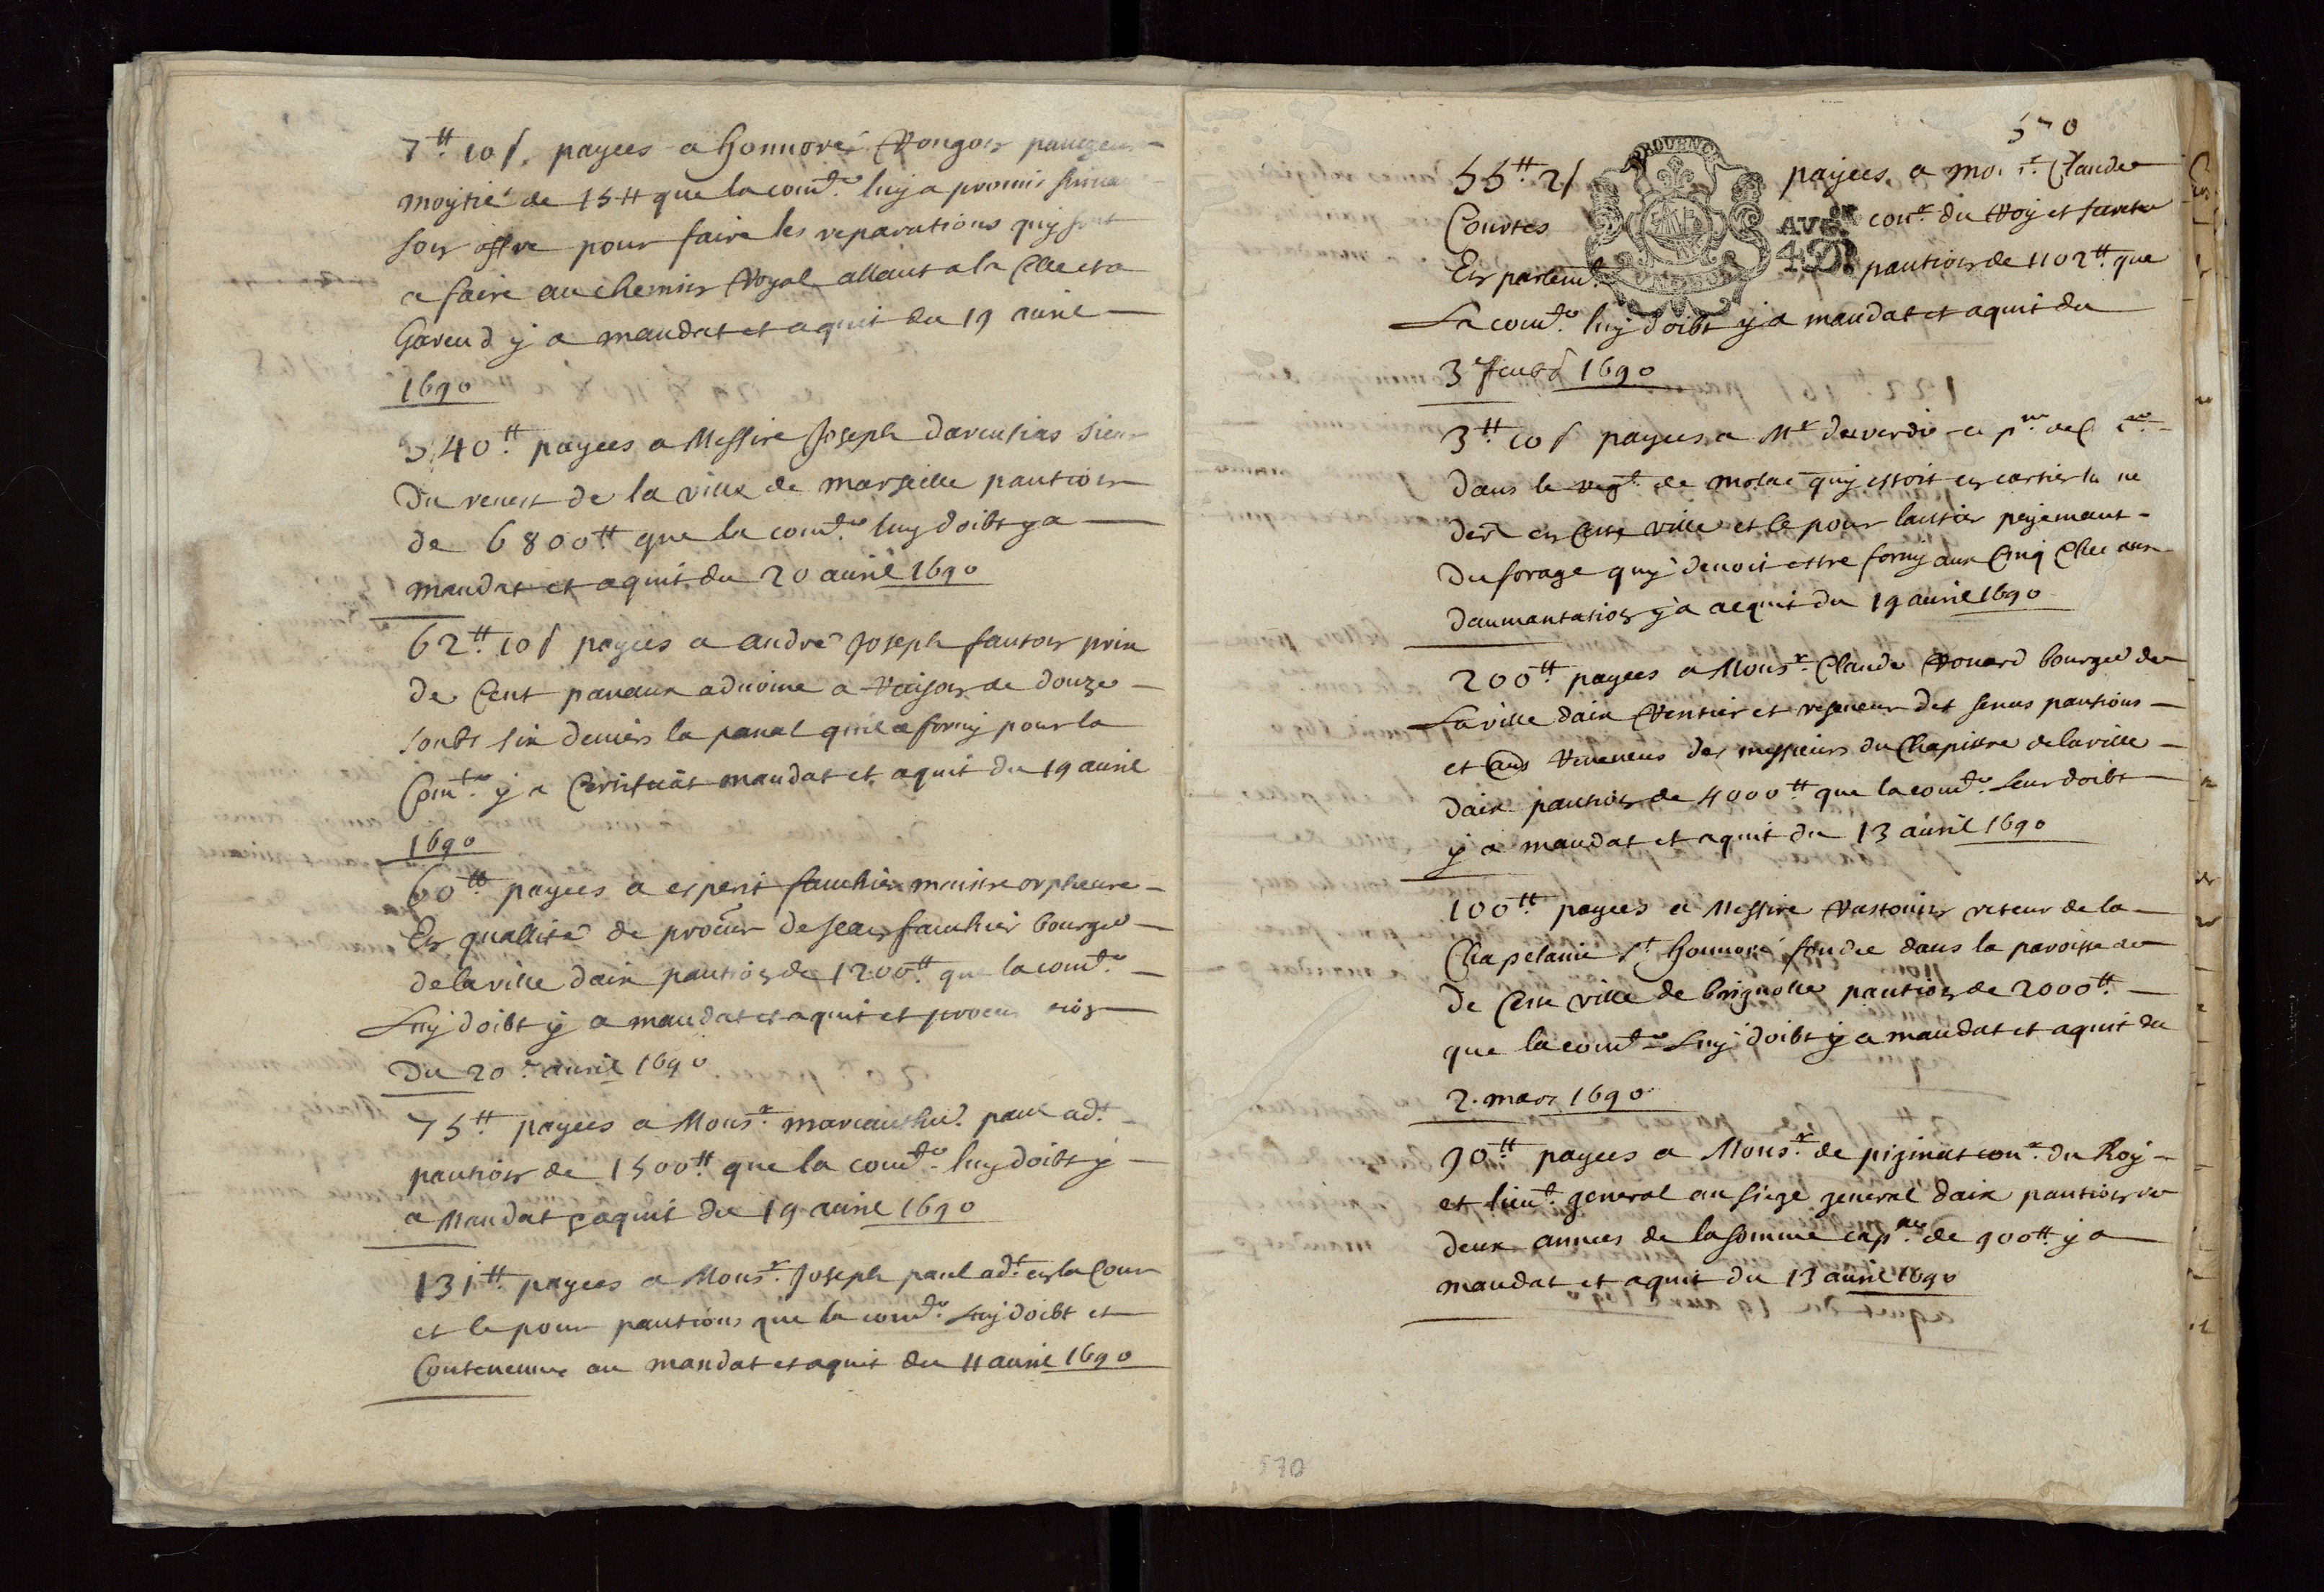 7ᵗᵗ 10 s. payees a honnoré Rougon
moytié de 15 ᵗᵗ que la comᵗᵉ luy a promis
son offre pour faire les reparations quy sont
a faire au chemin Royal allant a la Celle et a
Gareud y a mandat et aquit du 19 auril
1690
340ᵗᵗ payees a Messire Joseph sieur
Du reuest de la ville de marseille pantion
de 6800ᵗᵗ que la comᵗᵉ luy doibt y a
mandat et aquit du 20 auril 1690
62ᵗᵗ 10 s payees a andré Joseph fanton prix
de Cent panaux advoine a Raison de douze
soubs six deniers la panal quil a forny pour la
Comᵗᵉ y a Certificat mandat et aquit du 19 auril
1690
60ᵗᵗ payees a esperit fauchier maistre orpheure
En quallité de procur de Jean fauchier bourgeo
de la ville daix pantion de 1200ᵗᵗ que la comᵗᵉ
Luy doibt y a mandat et aquit et
Du 20ᵉ auril 1690
75ᵗᵗ payees a Monsʳ paul adᵗ
pantion de 1500ᵗᵗ que la comᵗᵉ luy doibt y
a Mandat aquit du 19 auril 1690
131ᵗᵗ payees a Monsʳ Joseph paul adᵗ en la Cour
et ce pour pantions que la comᵗᵉ Luy doibt et
Conteneues au mandat et aquit du 11 auril 1690
570
55ᵗᵗ 2 s payees a Claude
PROVENCE
Courtes conʳ du Roy et
AVG.ON
4 D.
En parlemᵗ pantion de 1102ᵗᵗ que
La comᵗᵉ luy doibt y a mandat et aquit du
3 1690
3ᵗᵗ 10 s payees a Mʳ
dans le regᵗ de molac quy estoit en cartier
en Ceste ville et ce pour lantier payemant
Du forage quy deuoit estre forny aux Cinq
daumantation y a acquit du 19 auril 1690
200ᵗᵗ payees a Monsʳ Claude Rouard bourgeo de
La ville daix Rentier et des sences pantions
et Revenus des messieurs du Chapittre de la ville
daix pantion de 4000ᵗᵗ que la comᵗᵉ Leur doibt
y a mandat et aquit du 13 auril 1690
100ᵗᵗ payees a Messire reteur de la
Chapelanie Sᵗ honnoré fondée dans la paroisse
de Ceste ville de brignolle pantion de 2000ᵗᵗ
que la comᵗᵉ Luy doibt y a mandat et aquit du
2 mars 1690
90ᵗᵗ payees a Monsʳ de conʳ du Roy
et lieutᵗ general au siege general daix pantion de
deux annees de la somme capˡˡᵉ de 900ᵗᵗ y a
mandat et aquit du 13 auril 1690
570